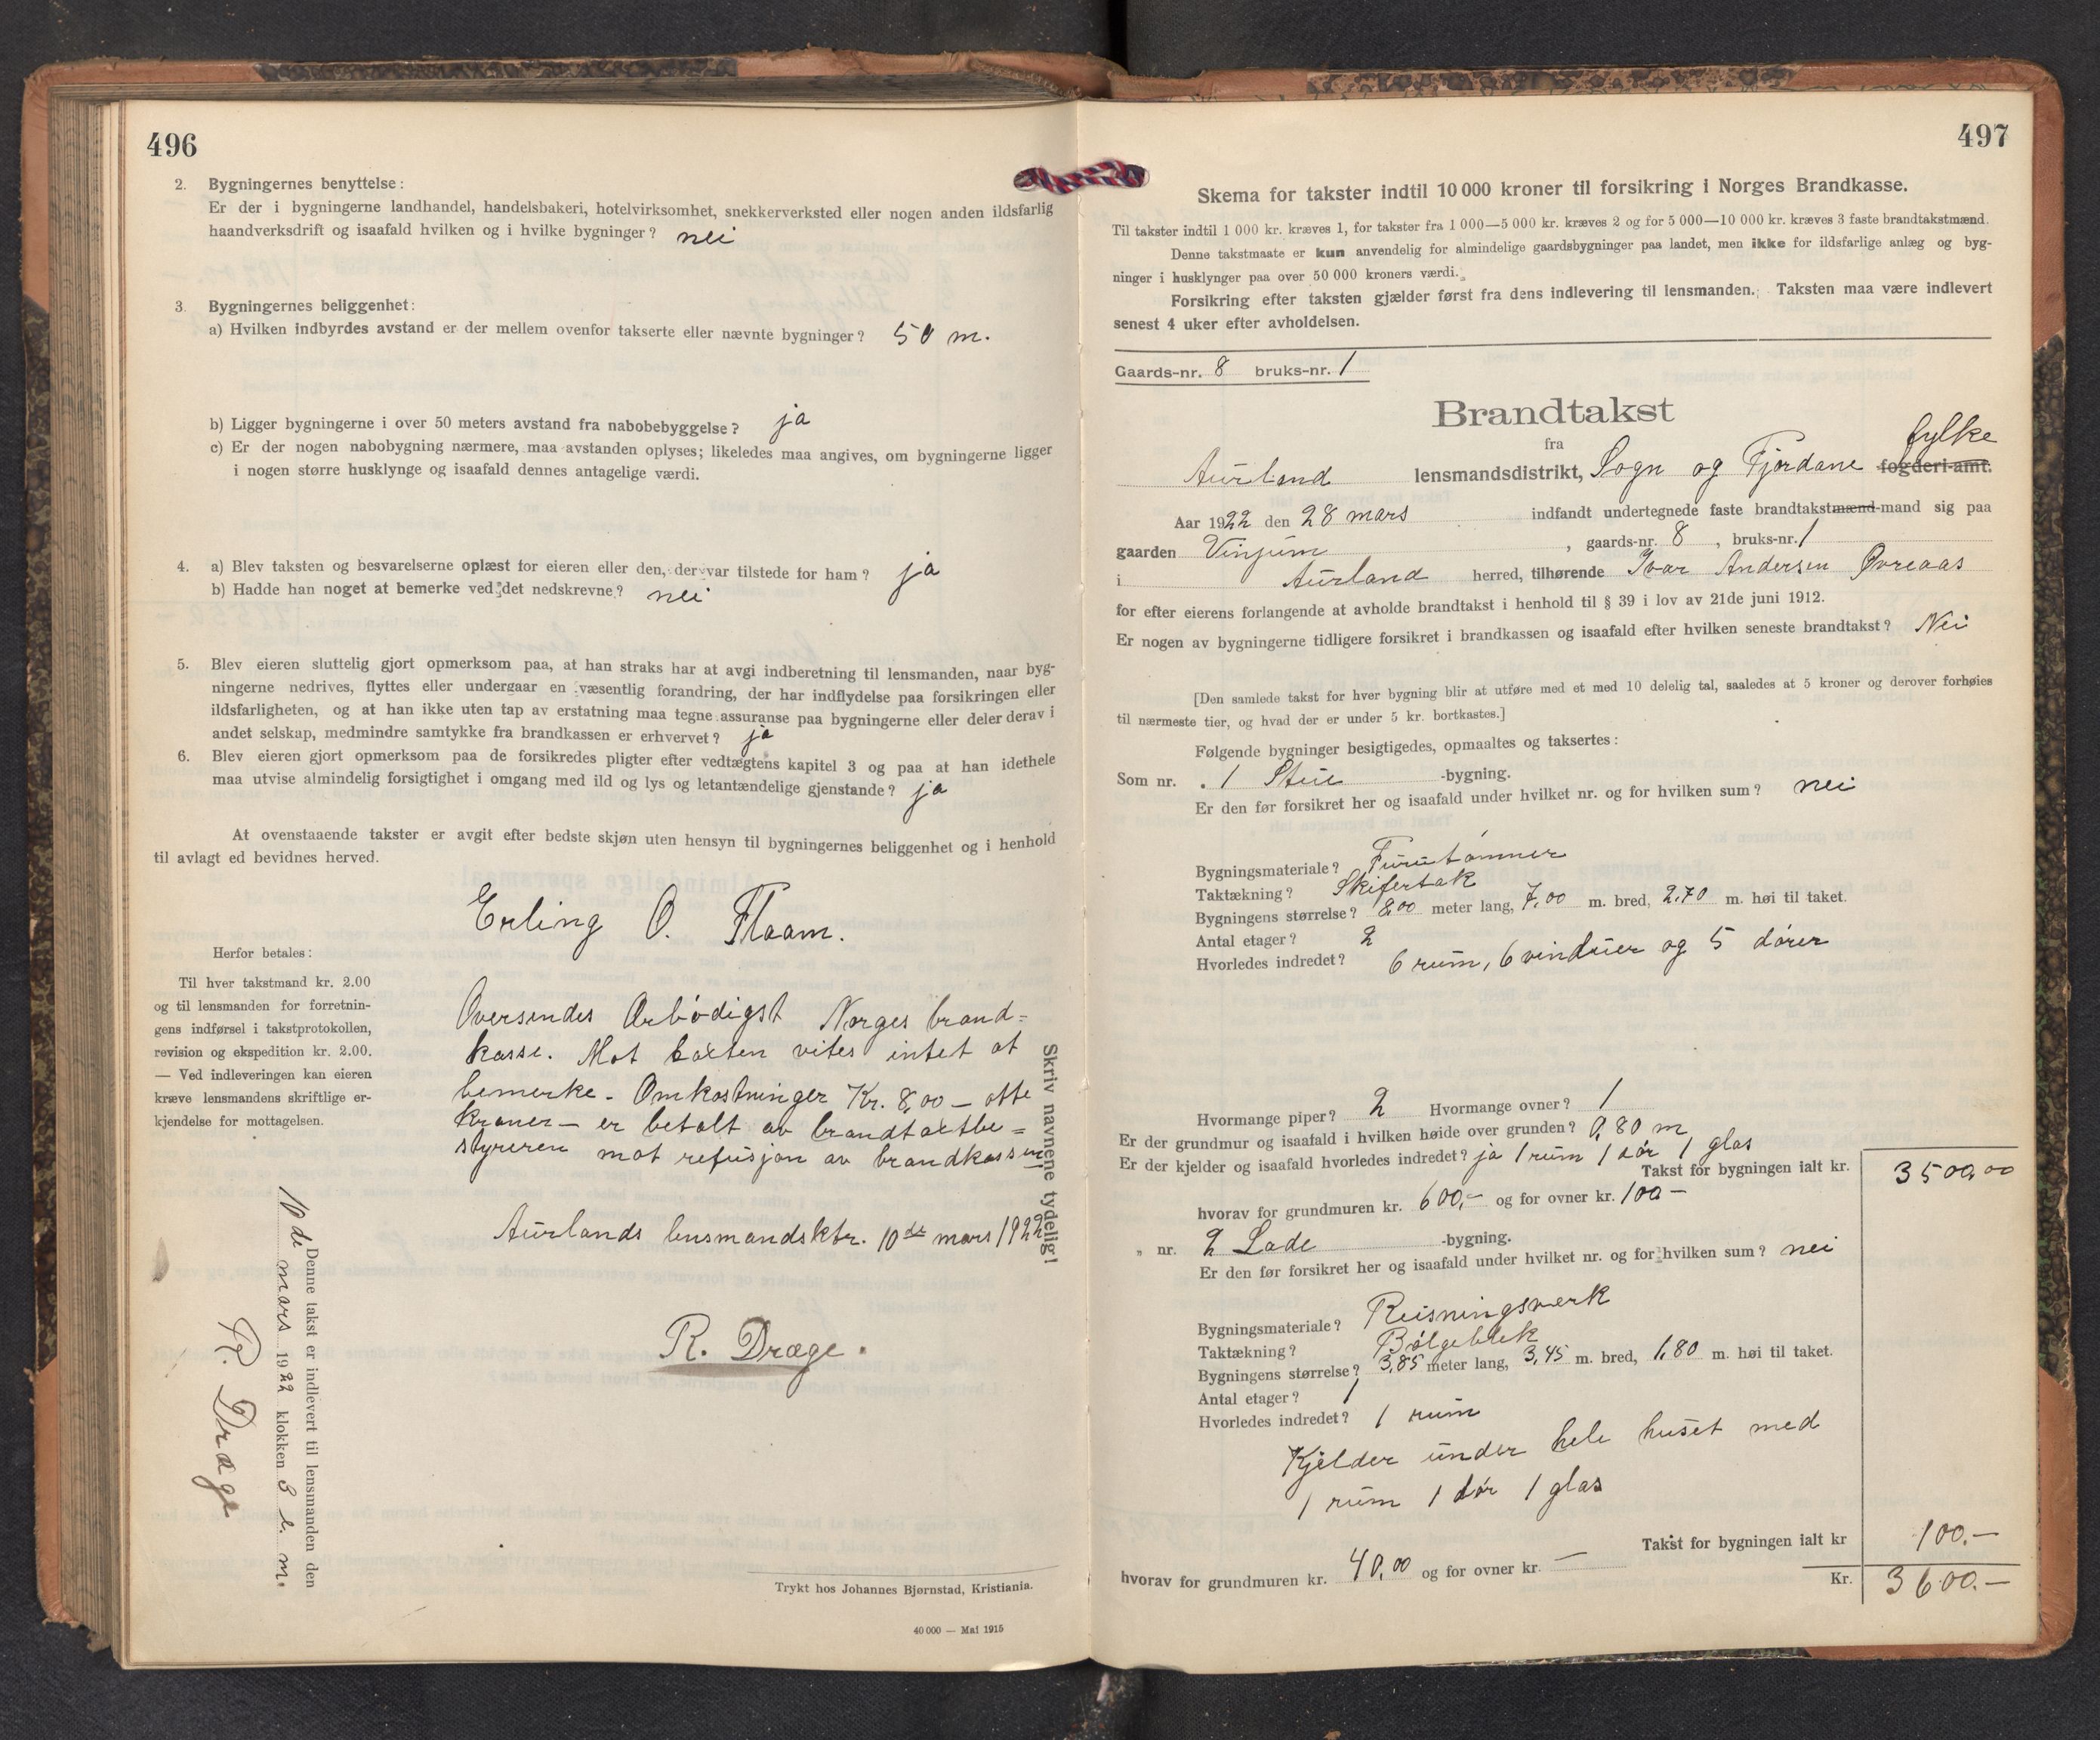 496
2. Bygningernes benyttelse:
Er der i bygningerne landhandel, handelsbakeri, hotelvirksomhet, snekkerverksted eller nogen anden ildsfarlig
haandverksdrift og isaafald hvilken og i hvilke bygninger? nei
3. Bygningernes beliggenhet:
a) Hvilken indbyrdes avstand er der mellem ovenfor takserte eller nævnte bygninger? 50 m.
b) Ligger bygningerne i over 50 meters avstand fra nabobebyggelse? ja
c) Er der nogen nabobygning nærmere, maa avstanden oplyses; likeledes maa angives, om bygningerne ligger
i nogen større husklynge og isaafald dennes antagelige værdi.
4. a) Blev taksten og besvarelserne oplæst for eieren eller den, der var tilstede for ham? ja
b) Hadde han noget at bemerke ved det nedskrevne? nei
5. Blev eieren sluttelig gjort opmerksom paa, at han straks har at avgi indberetning til lensmanden, naar byg-
ningerne nedrives, flyttes eller undergaar en væsentlig forandring, der har indflydelse paa forsikringen eller
ildsfarligheten, og at han ikke uten tap av erstatning maa tegne assuranse paa bygningerne eller deler derav i
andet selskap, medmindre samtykke fra brandkassen er erhvervet? ja
6. Blev eieren gjort opmerksom paa de forsikredes pligter efter vedtægtens kapitel 3 og paa at han idethele
maa utvise almindelig forsigtighet i omgang med ild og lys og letantændelige gjenstande? ja
At ovenstaaende takster er avgit efter bedste skjøn uten hensyn til bygningernes beliggenhet og i henhold
til avlagt ed bevidnes herved.
Erling O. Flaam.
Herfor betales:
Til hver takstmand kr. 2.00
og til lensmanden for forretnin-
gens indførsel i takstprotokollen,
revision og ekspedition kr. 2.00.
— Ved indleveringen kan eieren
kræve lensmandens skriftlige er-
kjendelse for mottagelsen.
Oversendes Ærbødigst Norges brand=
kasse. Mot taxten vites intet at
bemerke. Omkostninger Kr. 8,00 – otte
kroner – er betalt av brandtaxtbe=
styreren mot refusjon av brandkassen
Aurlands lensmandsktr. 10de mars 1922
R. Dræge.
Skriv navnene tydelig!
Denne takst er indlevert til lensmanden den
10de mars 1922 klokken 3 e. m.
R. Dræge
Trykt hos Johannes Bjørnstad, Kristiania.
40 000 — Mai 1915
497
Skema for takster indtil 10 000 kroner til forsikring i Norges Brandkasse.
Til takster indtil 1 000 kr. kræves 1, for takster fra 1 000—5 000 kr. kræves 2 og for 5 000—10 000 kr. kræves 3 faste brandtakstmænd.
Denne takstmaate er kun anvendelig for almindelige gaardsbygninger paa landet, men ikke for ildsfarlige anlæg og byg-
ninger i husklynger paa over 50 000 kroners værdi.
Forsikring efter taksten gjælder først fra dens indlevering til lensmanden. Taksten maa være indlevert
senest 4 uker efter avholdelsen.
Gaards-nr. 8 bruks-nr. 1
Brandtakst
fra
fylke
Aurland lensmandsdistrikt, Sogn og Fjordane fogderi-amt.
Aar 1922 den 28 mars indfandt undertegnede faste brandtakstmænd-mand sig paa
gaarden Vinjum, gaards-nr. 8, bruks-nr. 1
i Aurland herred, tilhørende Ivar Andersen Øvreaas
for efter eierens forlangende at avholde brandtakst i henhold til § 39 i lov av 21de juni 1912.
Er nogen av bygningerne tidligere forsikret i brandkassen og isaafald efter hvilken seneste brandtakst? Nei
[Den samlede takst for hver bygning blir at utføre med et med 10 delelig tal, saaledes at 5 kroner og derover forhøies
til nærmeste tier, og hvad der er under 5 kr. bortkastes.]
Følgende bygninger besigtigedes, opmaaltes og taksertes:
Som nr. 1 Stue -bygning.
Er den før forsikret her og isaafald under hvilket nr. og for hvilken sum? nei
Bygningsmateriale? Furutømmer
Taktækning? Skifertak
Bygningens størrelse? 8,00 meter lang, 7,00 m. bred, 2,70 m. høi til taket.
Antal etager? 2
Hvorledes indredet? 6 rum, 6 vinduer og 5 dører
Hvormange piper? 2 Hvormange ovner? 1
Er der grundmur og isaafald i hvilken høide over grunden? 0,80 m
Er der kjelder og isaafald hvorledes indredet? ja 1 rum 1 dør 1 glas
Takst for bygningen ialt kr. 3500,00
hvorav for grundmuren kr. 600,- og for ovner kr. 100 -
„ nr. 2 Lade -bygning.
Er den før forsikret her og isaafald under hvilket nr. og for hvilken sum? nei
Bygningsmateriale? Reisningsverk
Taktækning? Bølgeblek
Bygningens størrelse? 3,85 meter lang, 3,45 m. bred, 1,80 m. høi til taket.
Antal etager? 1
Hvorledes indredet? 1 rum
Kjelder under hele huset med
1 rum 1 dør 1 glas
Takst for bygningen ialt kr 100.-
hvorav for grundmuren kr. 40,00 og for ovner kr. —
Kr. 3600.-